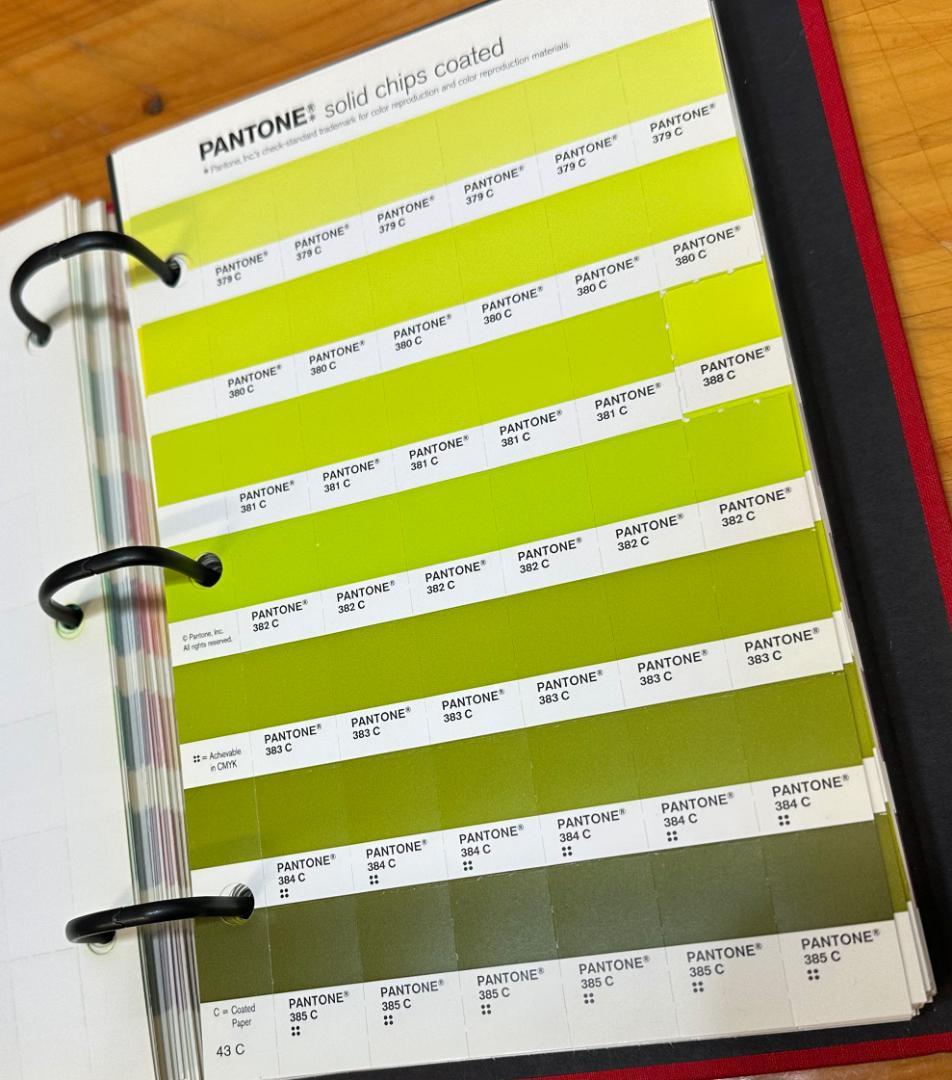 PANTONE®* solid chips coated
* Pantone, Inc.'s check-standard trademark for color reproduction and color reproduction materials.
PANTONE® PANTONE® PANTONE® PANTONE® PANTONE® PANTONE®
379 C 379 C 379 C 379 C 379 C 379 C
PANTONE® PANTONE® PANTONE® PANTONE® PANTONE® PANTONE®
380 C 380 C 380 C 380 C 380 C 380 C
PANTONE® PANTONE® PANTONE® PANTONE® PANTONE® PANTONE®
381 C 381 C 381 C 381 C 381 C 388 C
© Pantone, Inc.
All rights reserved.
PANTONE® PANTONE® PANTONE® PANTONE® PANTONE® PANTONE®
382 C 382 C 382 C 382 C 382 C 382 C
= Achievable
in CMYK
PANTONE® PANTONE® PANTONE® PANTONE® PANTONE® PANTONE®
383 C 383 C 383 C 383 C 383 C 383 C
PANTONE® PANTONE® PANTONE® PANTONE® PANTONE® PANTONE®
384 C 384 C 384 C 384 C 384 C 384 C
C = Coated
Paper
PANTONE® PANTONE® PANTONE® PANTONE® PANTONE® PANTONE®
385 C 385 C 385 C 385 C 385 C 385 C
43 C